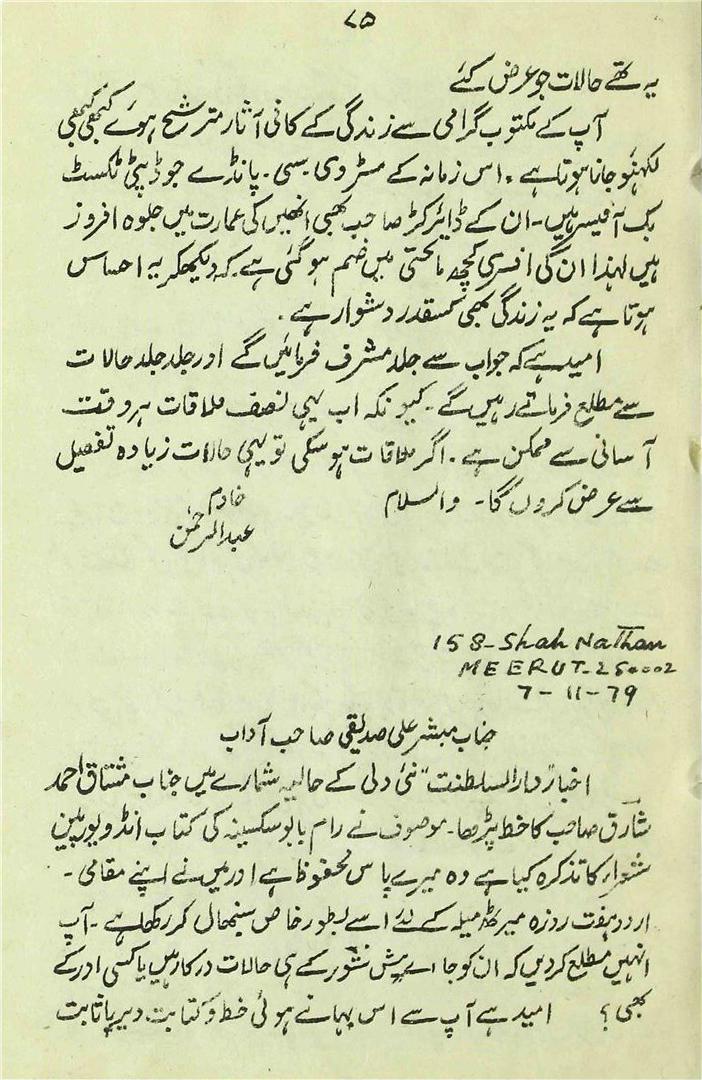 ۷۵
یہ تھے حالات جو عرض کئے
آپ کے مکتوب گرامی سے زندگی کے کافی آثار مترشح ہوئے کبھی کبھی
لکھنؤ جانا ہوتا ہے۔ اس زمانہ کے مسٹر وی بسی۔ پانڈے جو ڈپٹی ٹکسٹ
بک آفیسر ہیں۔ ان کے ڈائرکٹر صاحب بھی انھیں کی عمارت میں جلوہ افروز
ہیں لہذا ان کی افسری کچھ ماتحتی میں ضم ہو گئی ہے۔ کہ دیکھکر یہ احساس
ہوتا ہے کہ یہ زندگی بھی کسقدر دشوار ہے۔
امید ہے کہ جواب سے جلد مشرف فرمائیں گے اور جلد جلد حالات
سے مطلع فرماتے رہیں گے۔ کیونکہ اب یہی نصف ملاقات ہر وقت
آسانی سے ممکن ہے۔ اگر ملاقات ہو سکی تو یہی حالات زیادہ تفصیل
سے عرض کروں گا۔ والسلام
خادم
عبدالرحمٰن
158-Shah Nathan
MEERUT-250002
7-11-79
جناب مبشر علی صدیقی صاحب آداب
اخبار "دارالسلطنت" نئی دلی کے حالیہ شمارے میں جناب مشتاق احمد
شارق صاحب کا خط پڑھا۔ موصوف نے رام بابو سکسینہ کی کتاب انڈو یورپین
شعراء کا تذکرہ کیا ہے وہ میرے پاس محفوظ ہے اور میں نے اپنے مقامی۔
اردو ہفت روزہ میرٹھ میلہ کے لئے اسے بطور خاص سنبھال کر رکھا ہے۔ آپ
انہیں مطلع کر دیں کہ ان کو جا اے پش نشور کے ہی حالات درکار ہیں یا کسی اور کے
بھی؟ امید ہے آپ سے اس بہانے ہوئی خط و کتابت دیرپا ثابت